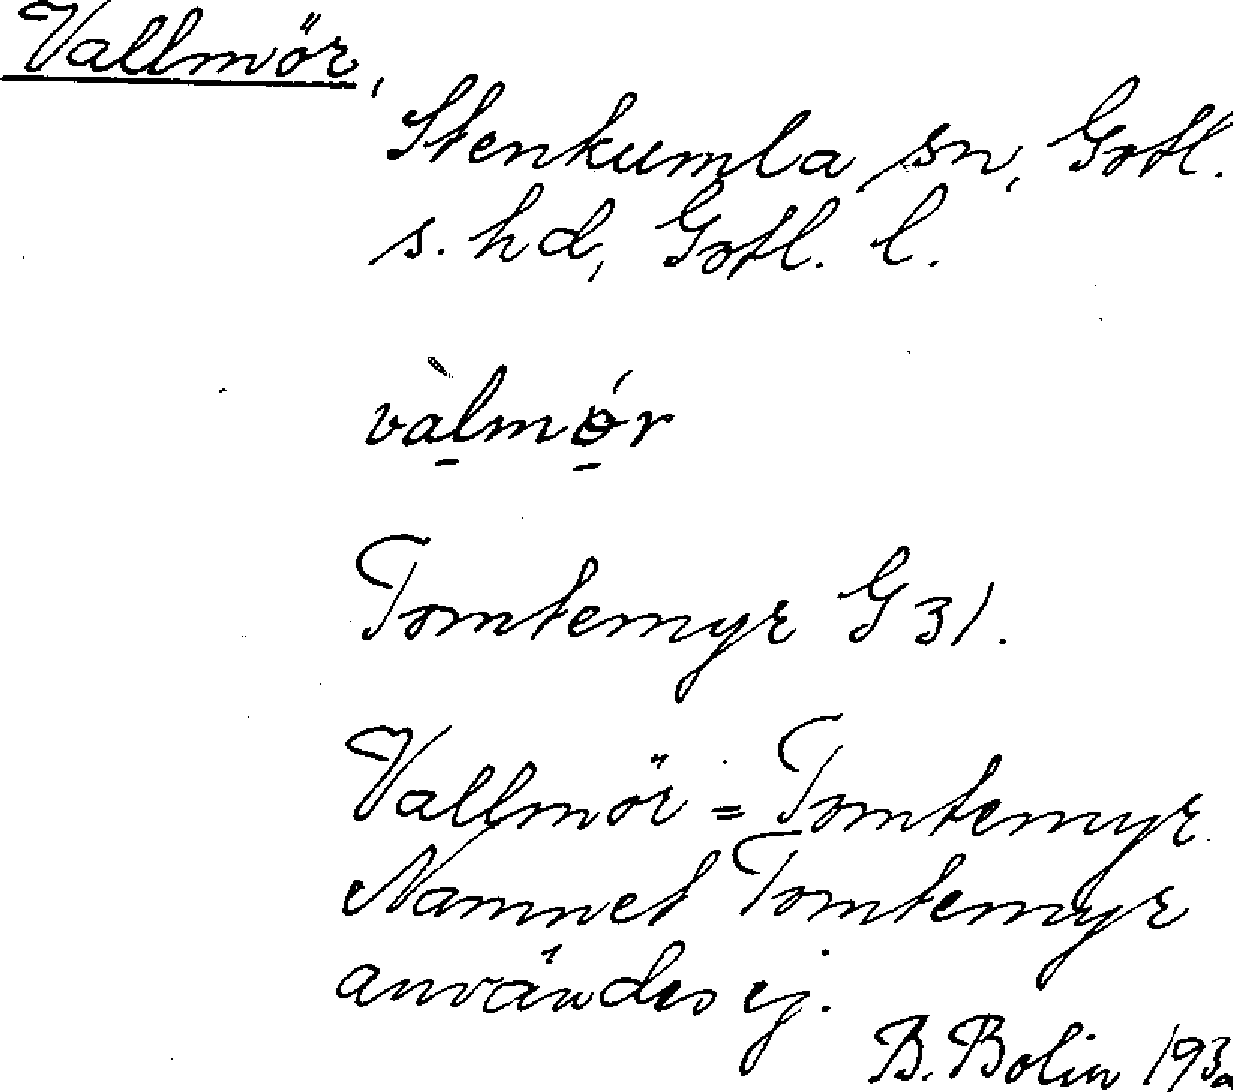 Vallmör,
Stenkumla sn, Gotl.
s. hd, Gotl. l.
vàlmǿr
Tomtemyr G 31.
Vallmör = Tomtemyr.
Namnet Tomtemyr
användes ej.
B. Bolin